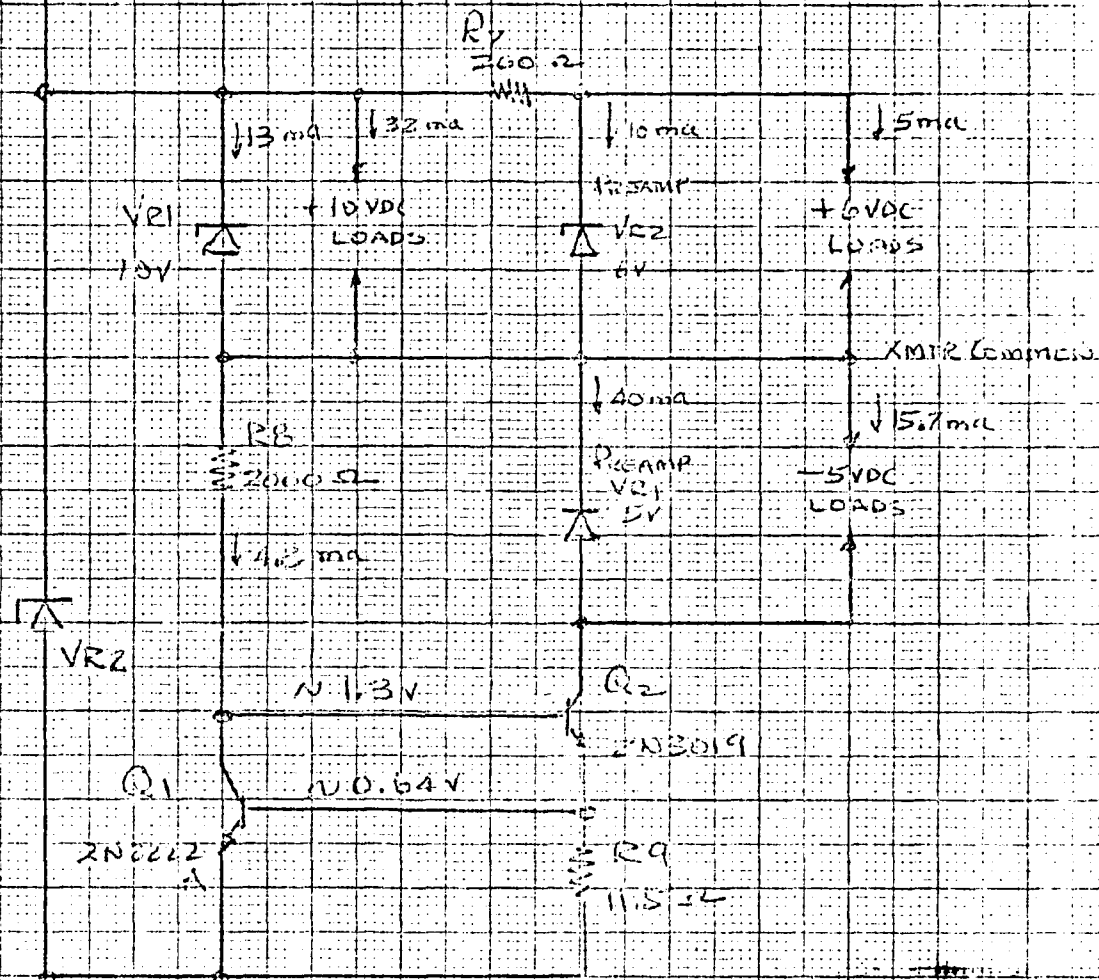 R7
260 Ω
↓13 ma
↓32 ma
↓10 ma
↓5ma
VR1
10V
+10VDC
LOADS
PREAMP
VR2
6V
+6VDC
LOADS
XMTR COMMON
↓40ma
↓15.7ma
R8
2000 Ω
PREAMP
VR1
5V
-5VDC
LOADS
↓4.8 ma
VR2
~ 1.3 V
Q2
2N3019
Q1
~ 0.64 V
2N2222
A
R9
11.5 Ω